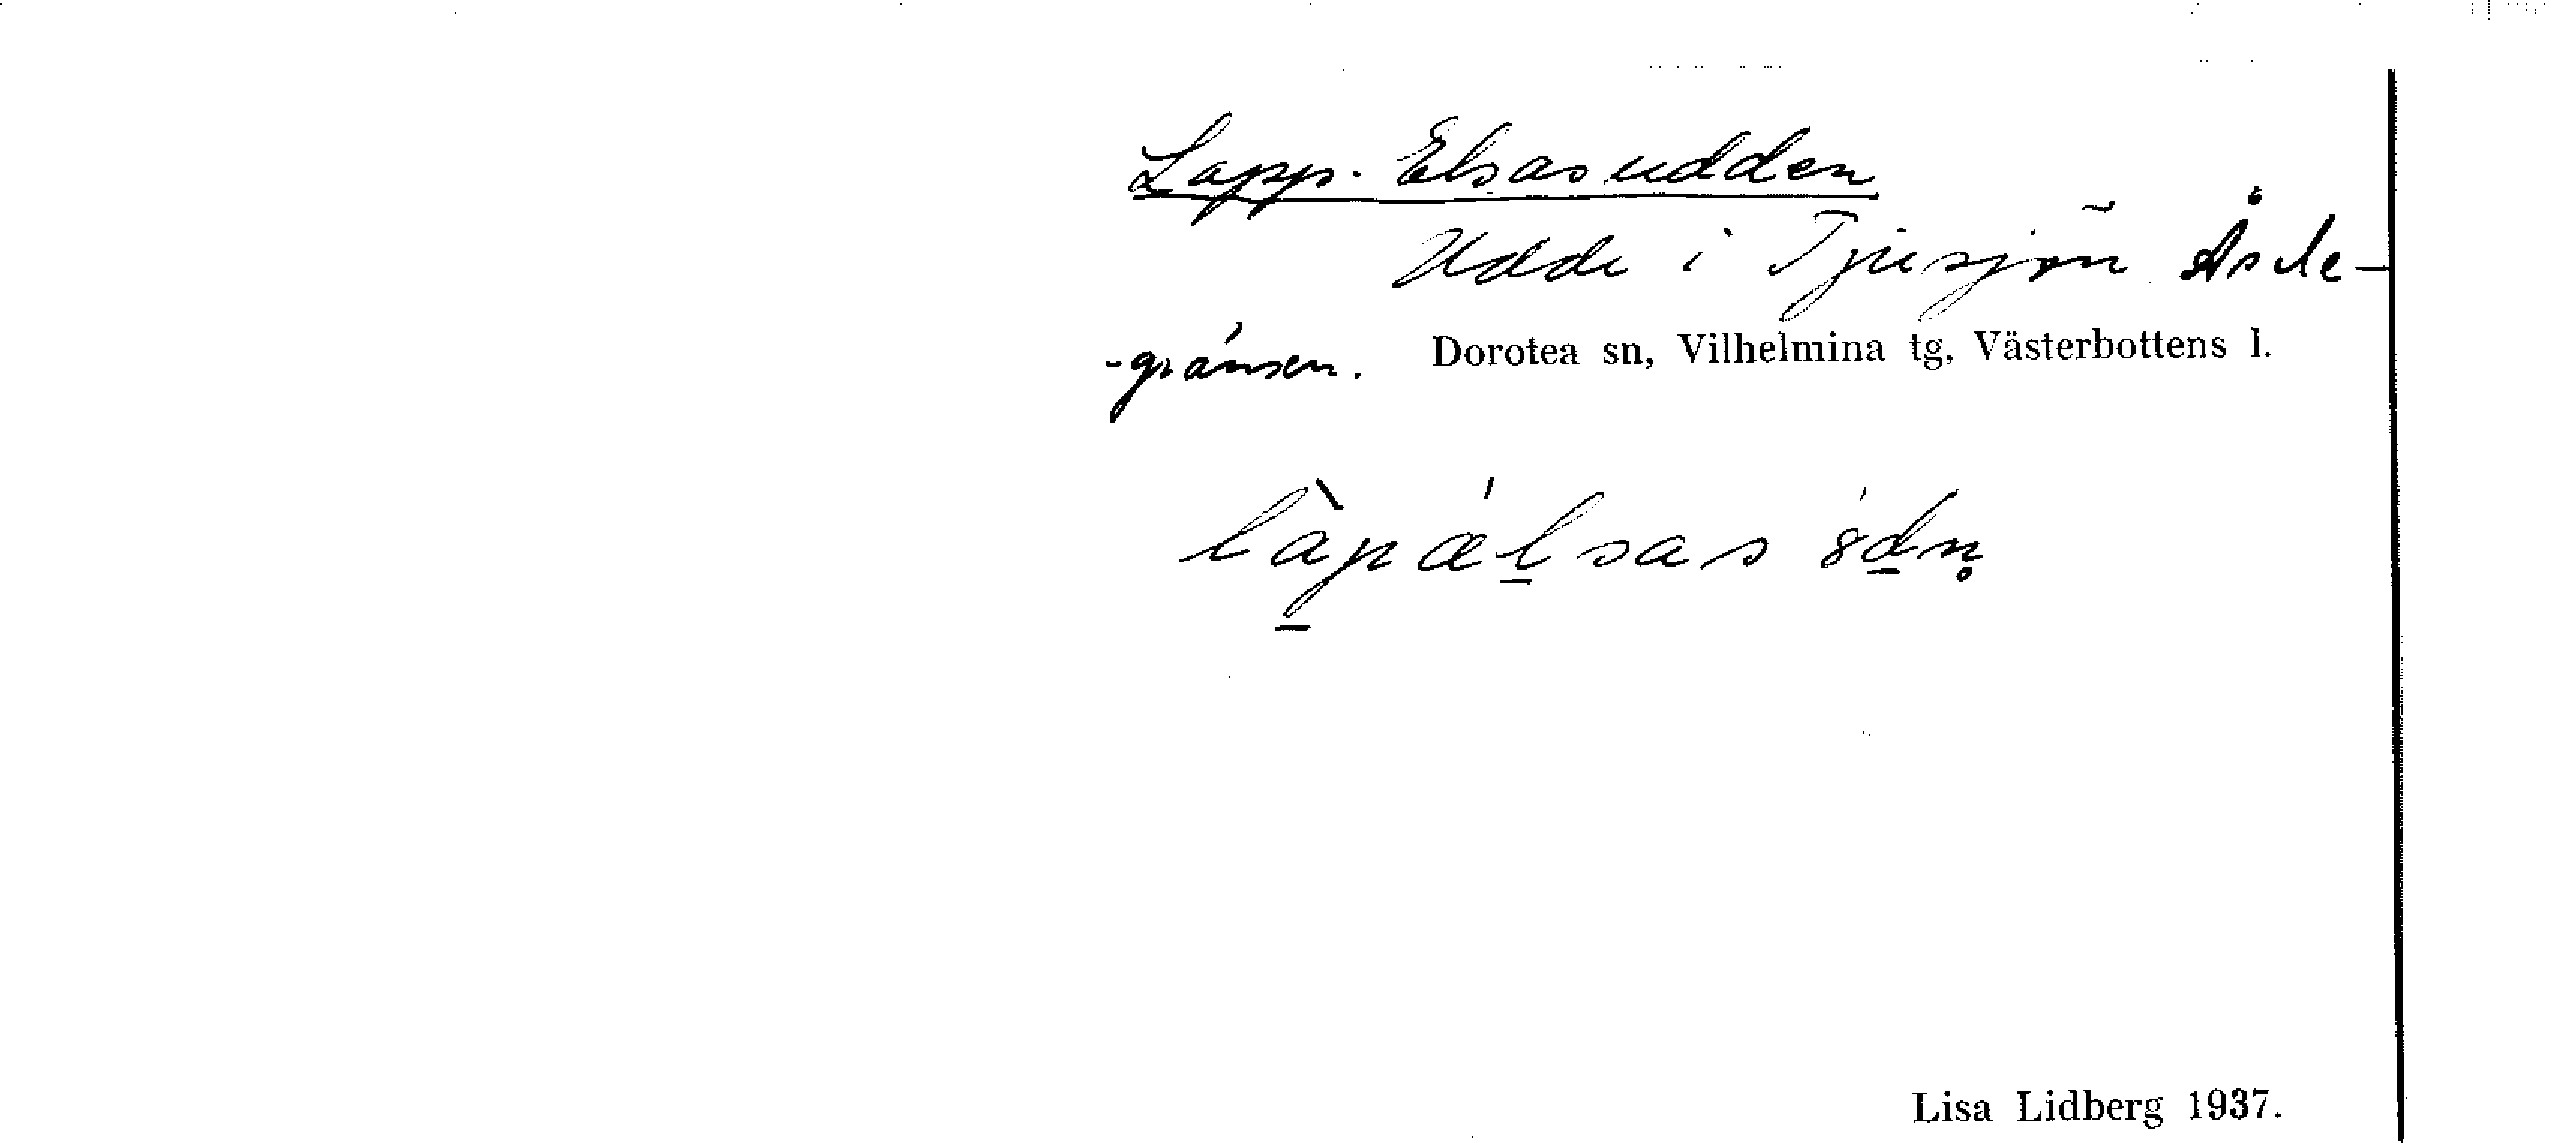 Lapp-Elsasudden
Udde i Tjusjön Åsele-
-gränsen. Dorotea sn, Vilhelmina tg, Västerbottens l.
làpǽlsas 8́dn̥
Lisa Lidberg 1937.